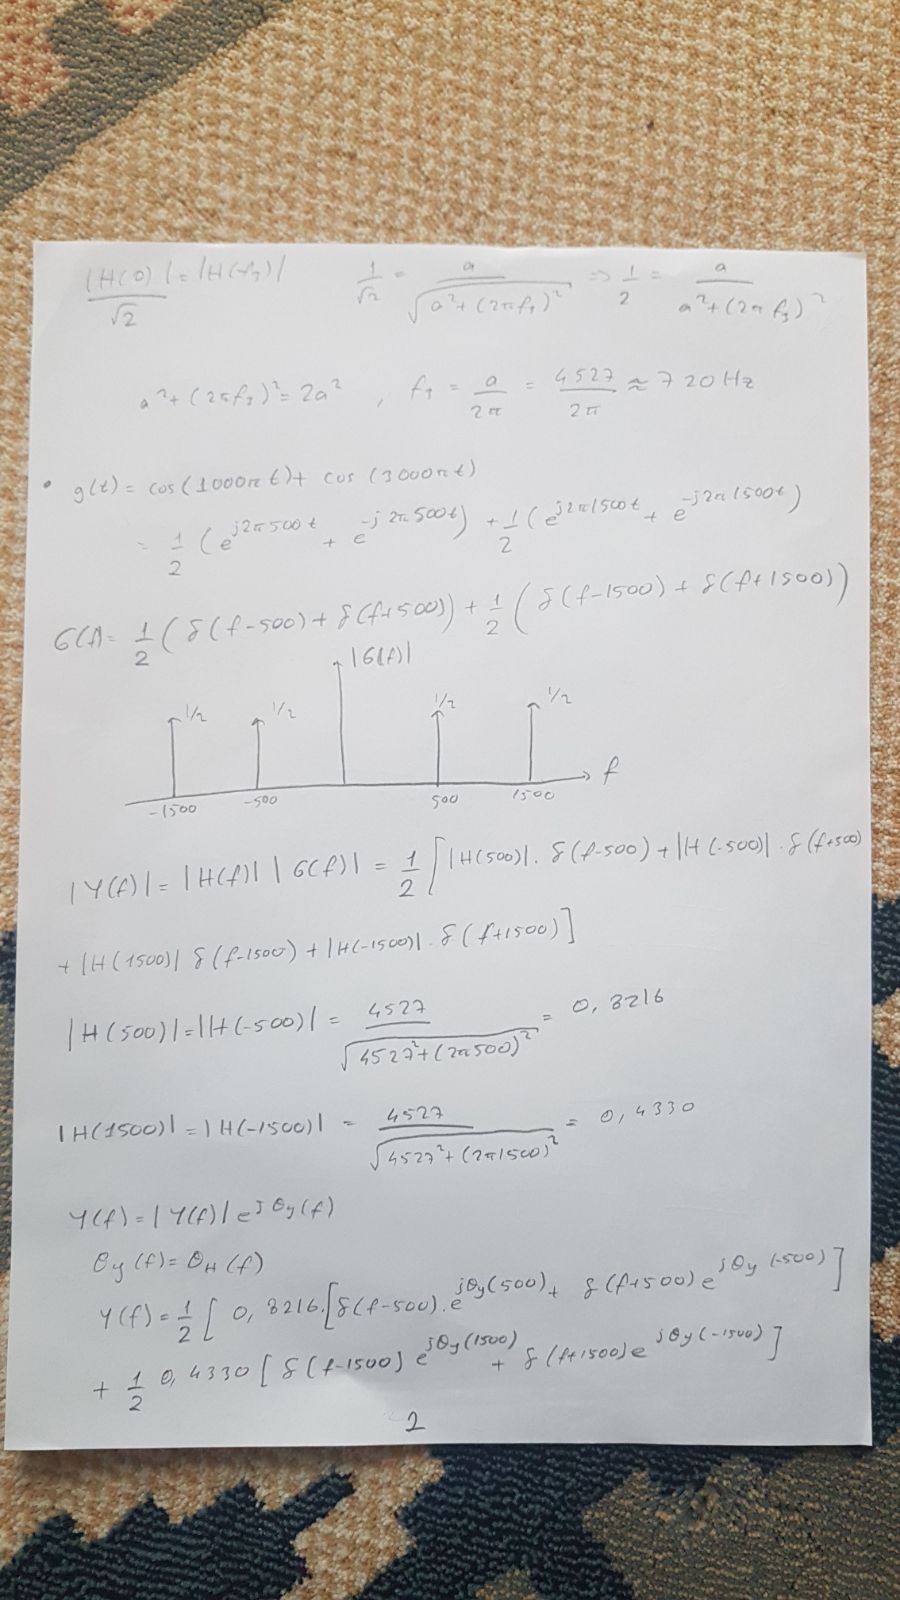 |H(0)|/√2 = |H(f₁)|    1/√2 = a/√(a²+(2πf₁)²) => 1/2 = a/(a²+(2πf₁)²)
a²+(2πf₁)² = 2a² , f₁ = a/2π = 4527/2π ≈ 720Hz
• g(t) = cos(1000πt) + cos(3000πt)
= 1/2 (e^{j2π500t} + e^{-j2π500t}) + 1/2 (e^{j2π1500t} + e^{-j2π1500t})
G(f) = 1/2 (δ(f-500) + δ(f+500)) + 1/2 (δ(f-1500) + δ(f+1500))
|G(f)|
1/2 1/2 1/2 1/2
f
-1500 -500 500 1500
|Y(f)| = |H(f)| |G(f)| = 1/2 [|H(500)|. δ(f-500) + |H(-500)| . δ(f+500)
+ |H(1500)| δ(f-1500) + |H(-1500)|. δ(f+1500)]
|H(500)| = |H(-500)| = 4527/√(4527²+(2π500)²) = 0,8216
|H(1500)| = |H(-1500)| = 4527/√(4527²+(2π1500)²) = 0,4330
Y(f) = |Y(f)| e^{jθy(f)}
θy(f) = θH(f)
Y(f) = 1/2 [ 0,8216.[δ(f-500).e^{jθy(500)} + δ(f+500) e^{jθy(-500)}]
+ 1/2 0,4330 [δ(f-1500) e^{jθy(1500)} + δ(f+1500) e^{jθy(-1500)}]
2